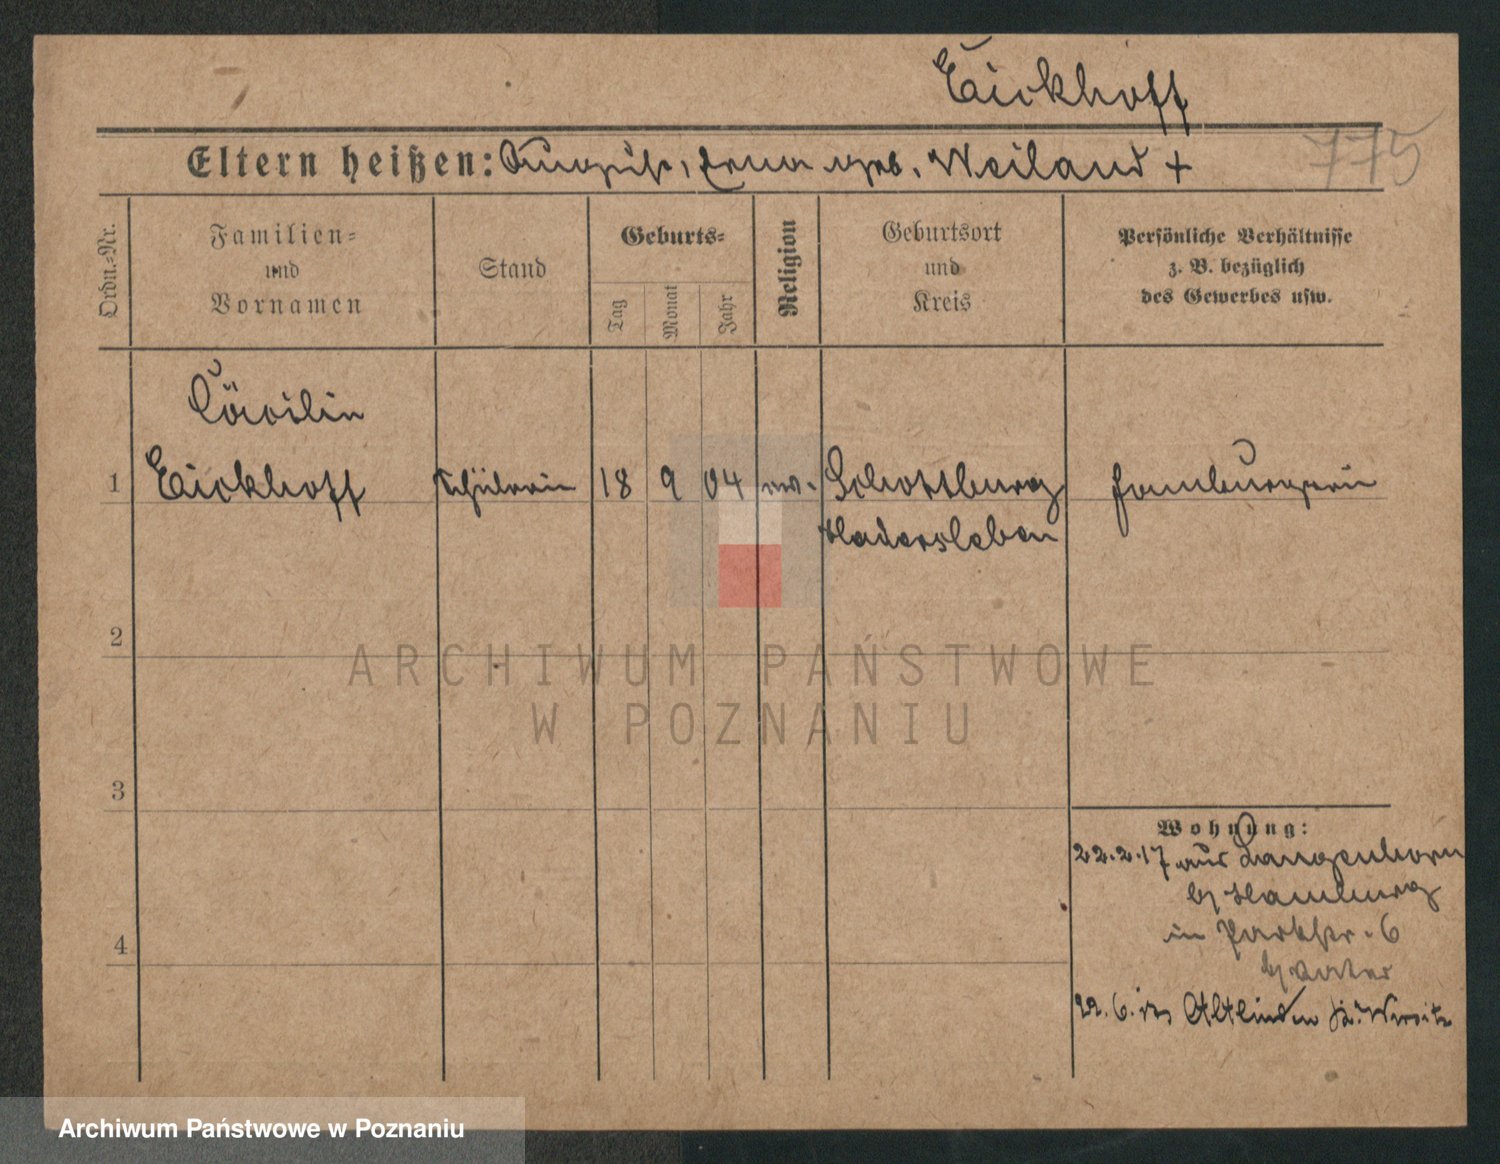 Eickhoff
775
Eltern heißen: August, Erna geb. Weiland +
Ordn.-Nr.
Familien-
und
Vornamen
Stand
Geburts-
Tag
Monat
Jahr
Religion
Geburtsort
und
Kreis
Persönliche Verhältnisse
z. B. bezüglich
des Gewerbes usw.
Cäcilie
1 Eickhoff Schülerin 18 9 04 ev. Schottburg Hamburgerin
Hadersleben
2
3
4
Wohnung:
22.2.17 aus Langenhorn
b/ Hamburg
in Parkstr. 6
b/ Vater
22.6. Altlinden Kr. Wirsitz
ARCHIWUM PAŃSTWOWE
W POZNANIU
Archiwum Państwowe w Poznaniu